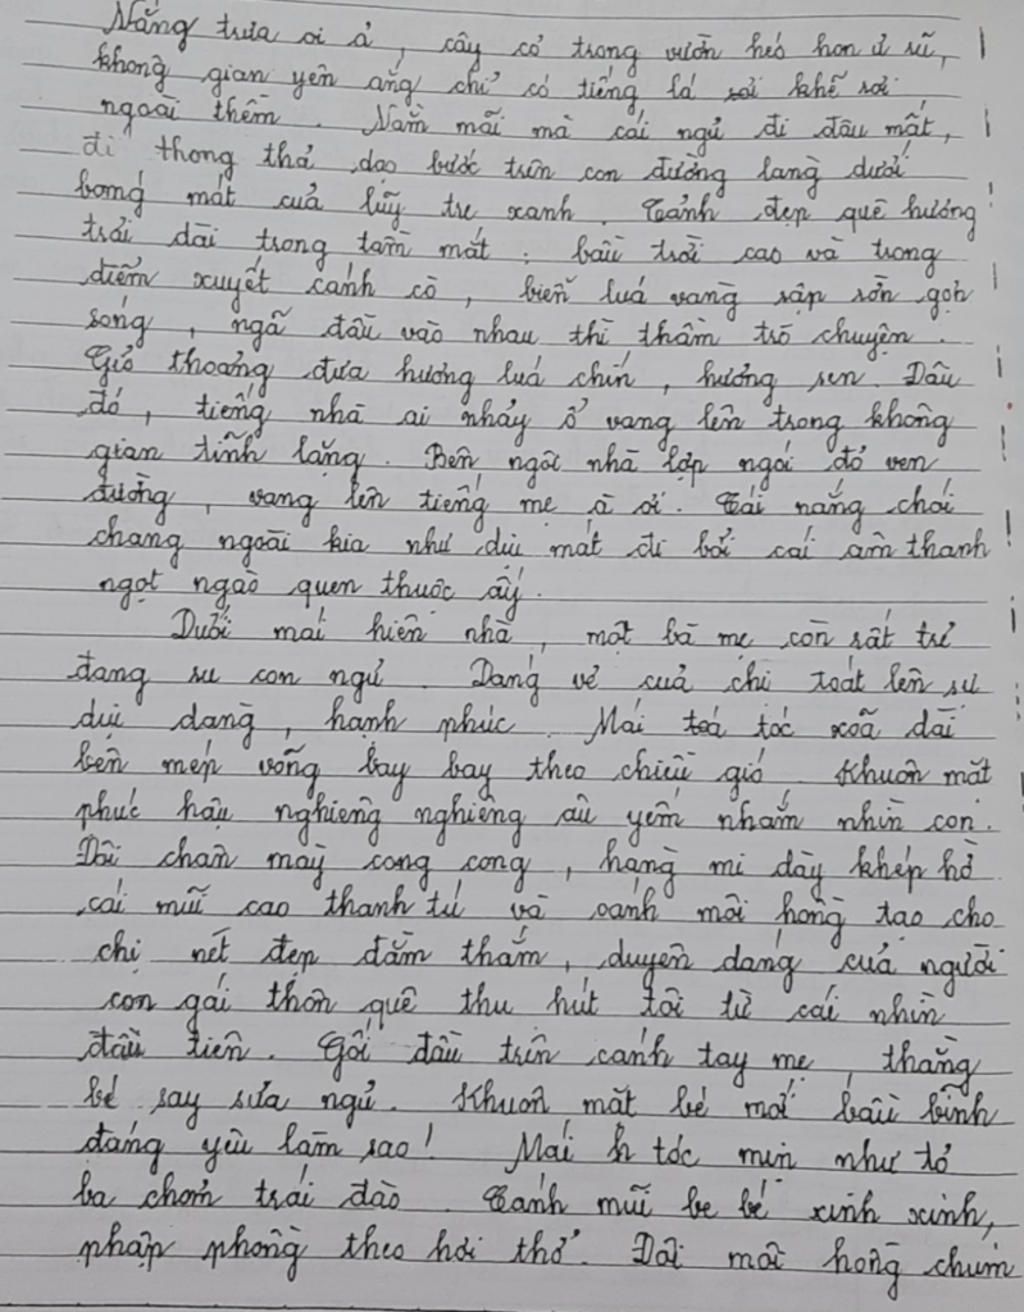 Nắng trưa oi ả, cây cỏ trong vườn héo hon ủ rũ,
không gian yên ắng chỉ có tiếng lá rơi khẽ rơi
ngoài thềm. Nằm mãi mà cái ngủ đi đâu mất,
đi thong thả dạo bước trên con đường làng dưới
bóng mát của lũy tre xanh. Cảnh đẹp quê hương
trải dài trong tầm mắt: bầu trời cao và trong
điểm xuyết cánh cò, biển lúa vàng rập rờn gợn
sóng, ngả đầu vào nhau thì thầm trò chuyện.
Gió thoảng đưa hương lúa chín, hương sen. Đâu
đó, tiếng nhà ai nhảy ổ vang lên trong không
gian tĩnh lặng. Bên ngôi nhà lợp ngói đỏ ven
đường, vang lên tiếng mẹ à ơi. Cái nắng chói
chang ngoài kia như dịu mát đi bởi cái âm thanh
ngọt ngào quen thuộc ấy.
Dưới mái hiên nhà, một bà mẹ còn rất trẻ
đang ru con ngủ. Dáng vẻ của chị toát lên sự
dịu dàng, hạnh phúc. Mái toá tóc xoã dài
bên mép võng bay bay theo chiều gió. Khuôn mặt
phúc hậu nghiêng nghiêng âu yếm nhắm nhìn con.
Đôi chân mày cong cong, hàng mi dày khép hờ
cái mũi cao thanh tú và cánh môi hồng tạo cho
chị nét đẹp đằm thắm, duyên dáng của người
con gái thôn quê thu hút tôi từ cái nhìn
đầu tiên. Gối đầu trên cánh tay mẹ, thằng
bé say sưa ngủ. Khuôn mặt bé mới bầu bĩnh
đáng yêu làm sao! Mái h tóc mịn như tơ
ba chỏm trái đào. Cánh mũi be bé xinh xinh,
phập phồng theo hơi thở. Đôi môi hồng chúm